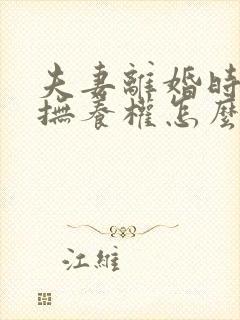 夫妻離婚時
撫養權怎麼
江維